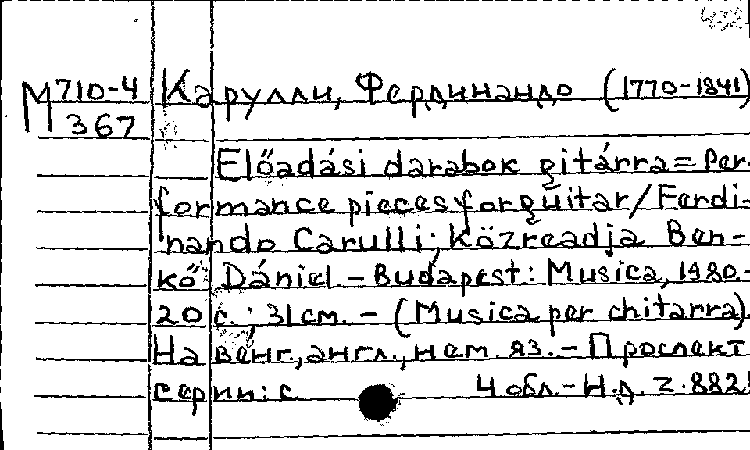 432
М 710-4 Карулли, Фердинандо (1770-1841)
367
Előadási darabok gitárra = Per-
formance pieces for guitar / Ferdi-
nando Carulli; Közreadja Ben-
kő Dániel. – Budapest: Musica, 1980.-
20 с.; 31 см. – (Musica per chitarra).
На венг., англ., нем яз. – Проспект
серии: с 4 обл. – Н.д. Z.882